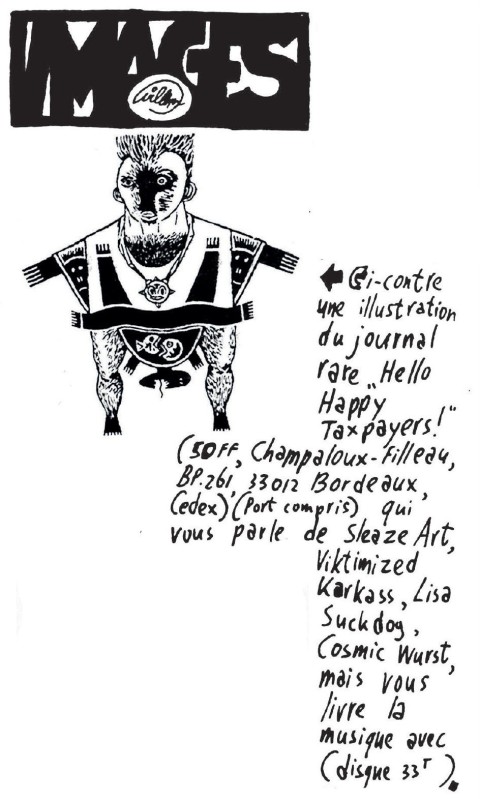 IMAGES
Willem
← Ci-contre
une illustration
du journal
rare „Hello
Happy
Taxpayers!"
(50FF, Champaloux-Filleau,
BP.261, 33012 Bordeaux,
Cedex) (Port compris) qui
vous parle de Sleaze Art,
Viktimized
Karkass, Lisa
Suckdog,
Cosmic Wurst,
mais vous
livre la
musique avec
(disque 33T).